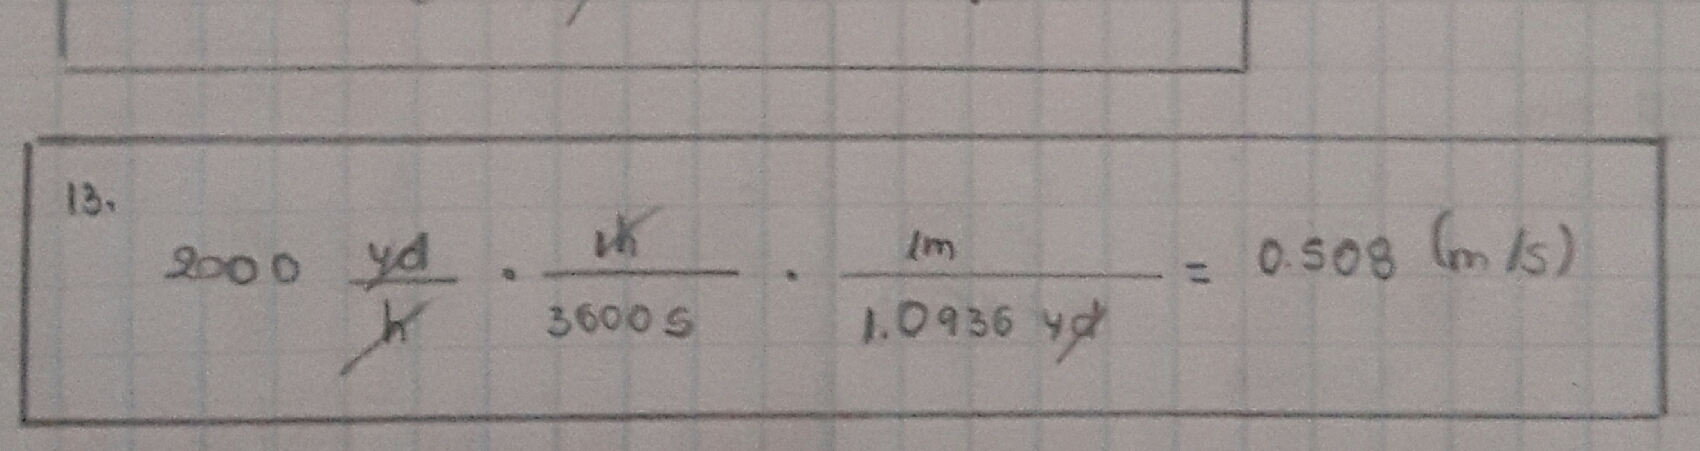 13.
2000 yd/h · 1h/3600s · 1m/1.0936 yd = 0.508 (m/s)